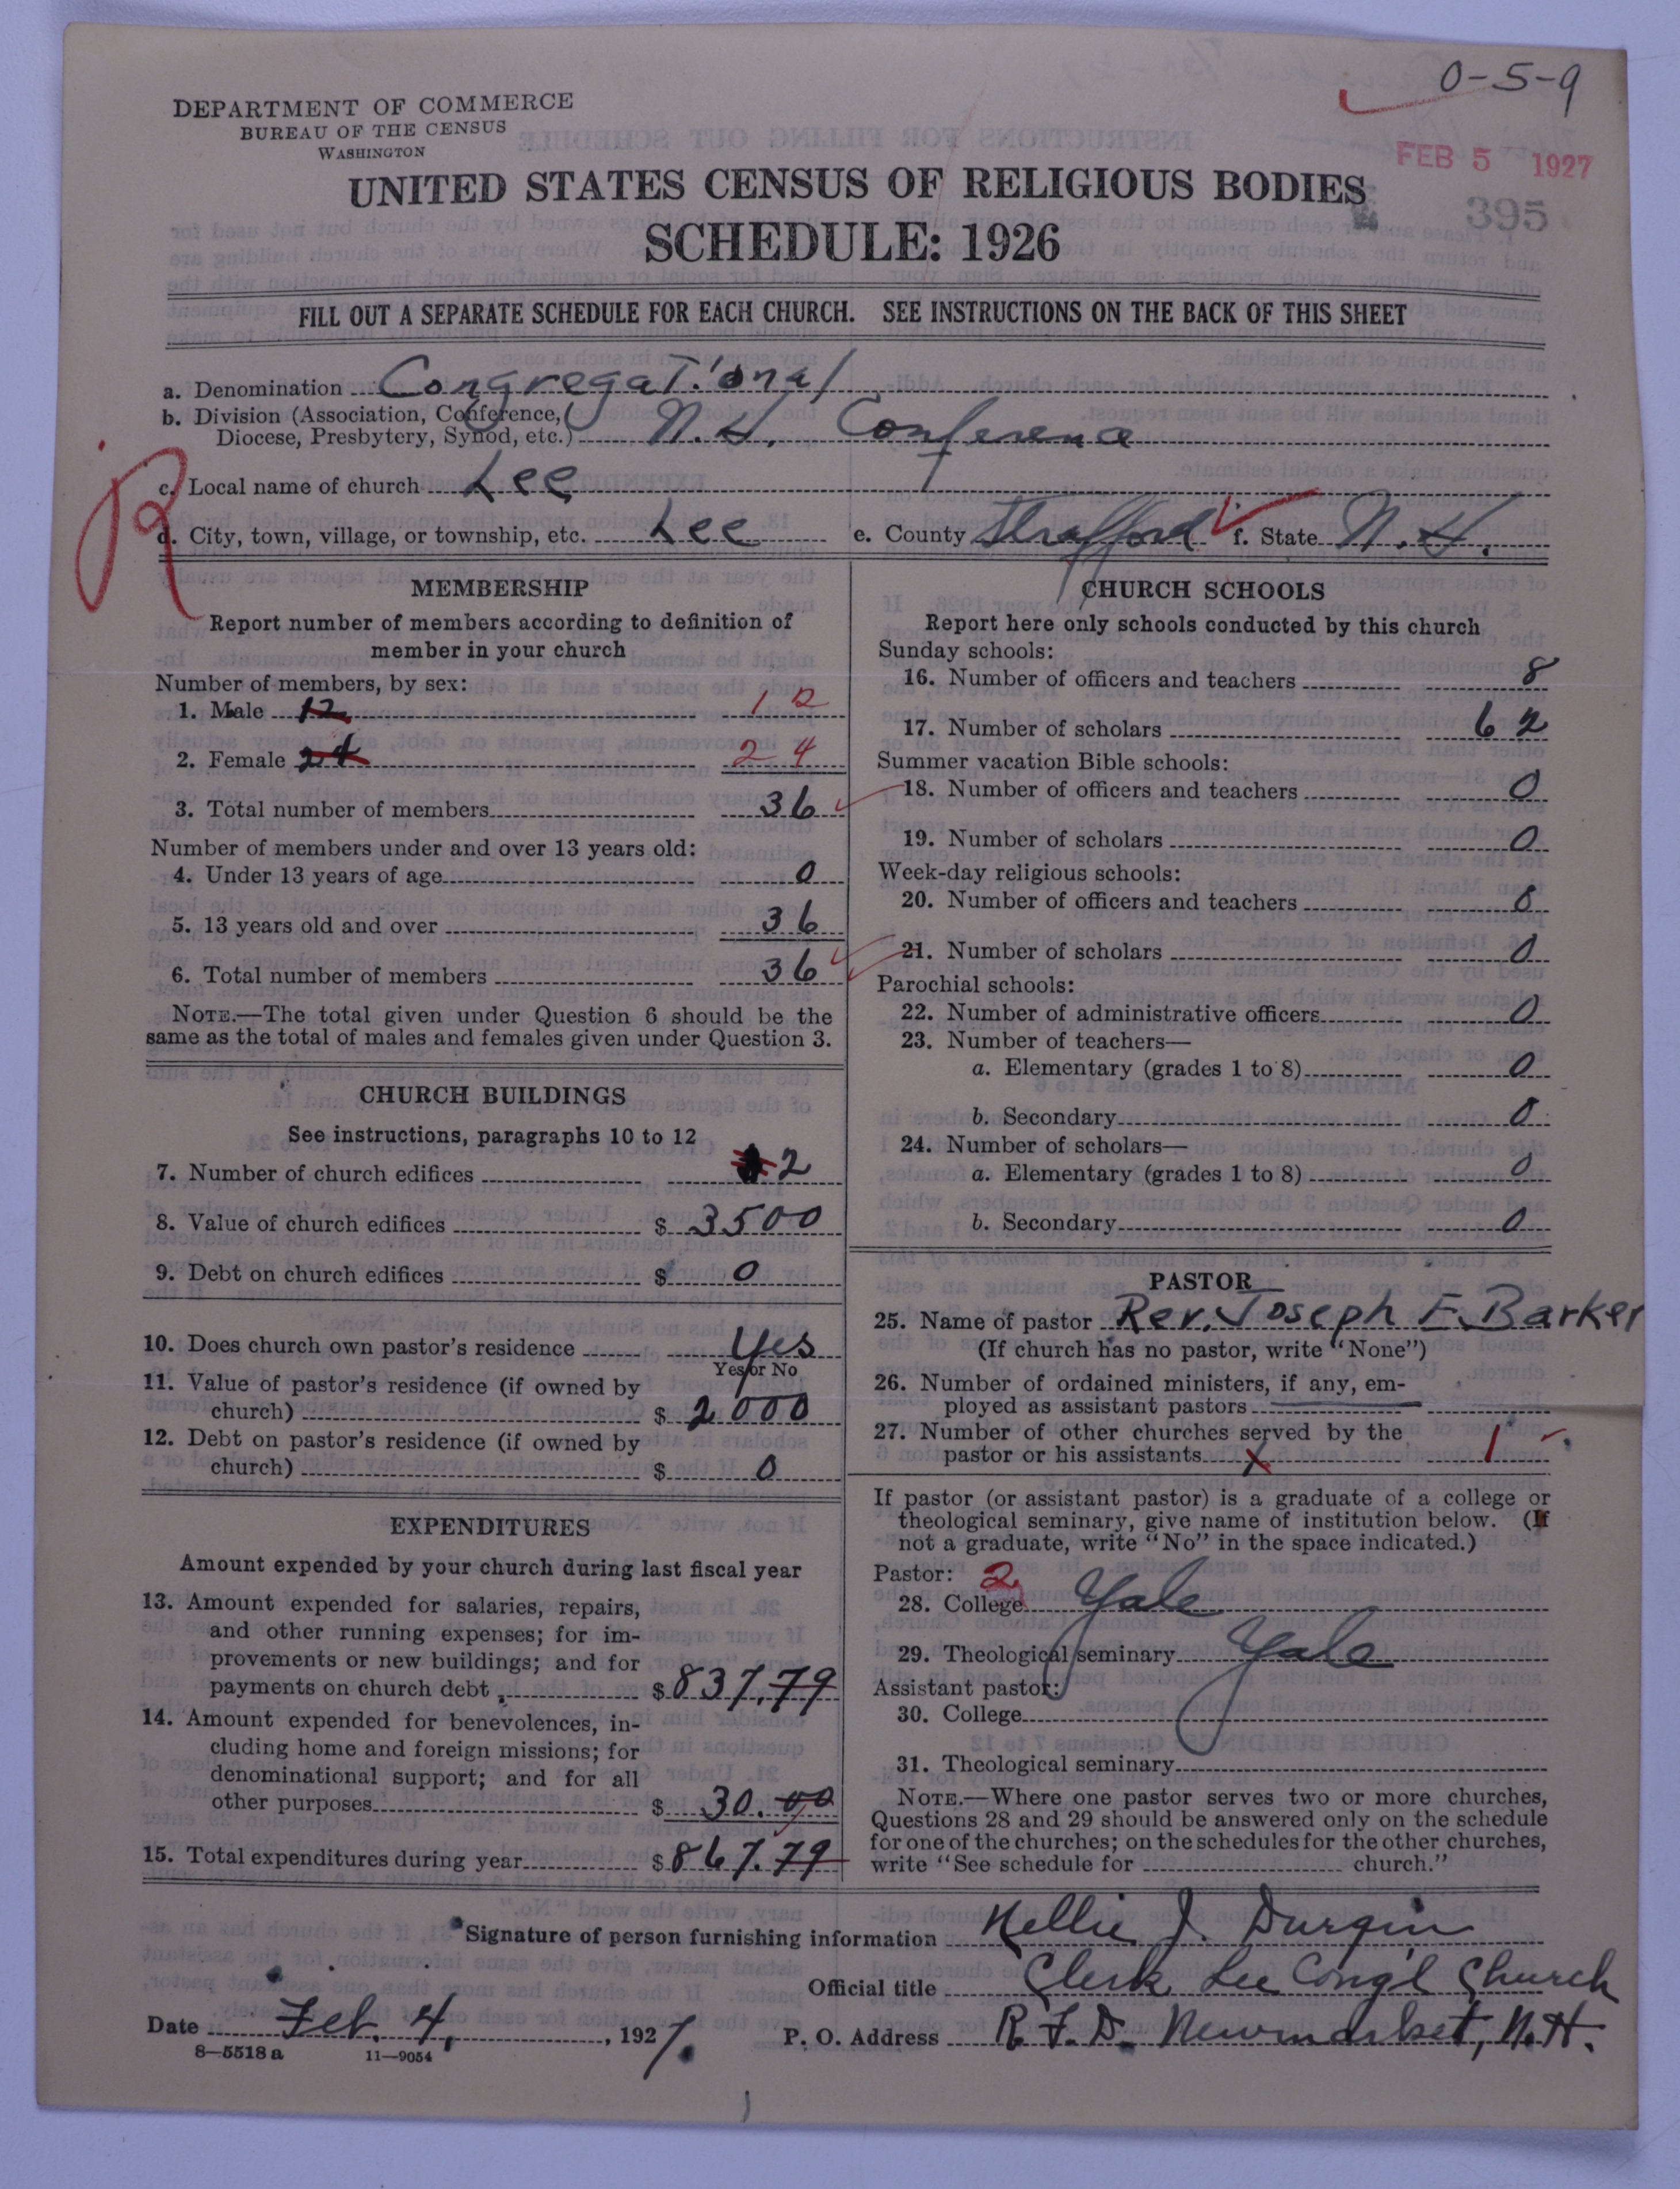 0-5-9
DEPARTMENT OF COMMERCE
BUREAU OF THE CENSUS
WASHINGTON
FEB 5 1927
395
UNITED STATES CENSUS OF RELIGIOUS BODIES
SCHEDULE: 1926
FILL OUT A SEPARATE SCHEDULE FOR EACH CHURCH. SEE INSTRUCTIONS ON THE BACK OF THIS SHEET
a. Denomination Congregational
b. Division (Association, Conference,
Diocese, Presbytery, Synod, etc.) N.H. Conference
R
c. Local name of church Lee
d. City, town, village, or township, etc. Lee e. County Strafford f. State N.H.
MEMBERSHIP
Report number of members according to definition of
member in your church
Number of members, by sex:
1. Male 12 12
2. Female 24 24
3. Total number of members 36
Number of members under and over 13 years old:
4. Under 13 years of age 0
5. 13 years old and over 36
6. Total number of members 36
NOTE.—The total given under Question 6 should be the
same as the total of males and females given under Question 3.
CHURCH BUILDINGS
See instructions, paragraphs 10 to 12
7. Number of church edifices 2
8. Value of church edifices $ 3500
9. Debt on church edifices $ 0
10. Does church own pastor's residence Yes
Yes or No
11. Value of pastor's residence (if owned by
church) $ 2000
12. Debt on pastor's residence (if owned by
church) $ 0
EXPENDITURES
Amount expended by your church during last fiscal year
13. Amount expended for salaries, repairs,
and other running expenses; for im-
provements or new buildings; and for
payments on church debt $ 837.79
14. Amount expended for benevolences, in-
cluding home and foreign missions; for
denominational support; and for all
other purposes $ 30.00
15. Total expenditures during year $ 867.79
CHURCH SCHOOLS
Report here only schools conducted by this church
Sunday schools:
16. Number of officers and teachers 8
17. Number of scholars 62
Summer vacation Bible schools:
18. Number of officers and teachers 0
19. Number of scholars 0
Week-day religious schools:
20. Number of officers and teachers 0
21. Number of scholars 0
Parochial schools:
22. Number of administrative officers 0
23. Number of teachers—
a. Elementary (grades 1 to 8) 0
b. Secondary 0
24. Number of scholars—
a. Elementary (grades 1 to 8) 0
b. Secondary 0
PASTOR
25. Name of pastor Rev. Joseph E. Barker
(If church has no pastor, write "None")
26. Number of ordained ministers, if any, em-
ployed as assistant pastors
27. Number of other churches served by the
pastor or his assistants 1
If pastor (or assistant pastor) is a graduate of a college or
theological seminary, give name of institution below. (If
not a graduate, write "No" in the space indicated.)
Pastor: 2
28. College Yale
29. Theological seminary Yale
Assistant pastor:
30. College
31. Theological seminary
NOTE.—Where one pastor serves two or more churches,
Questions 28 and 29 should be answered only on the schedule
for one of the churches; on the schedules for the other churches,
write "See schedule for church."
Signature of person furnishing information Nellie J. Durgin
Official title Clerk Lee Cong'l Church
Date Feb. 4, 1927. P. O. Address R.F.D. Newmarket, N.H.
8—5518 a 11—9054